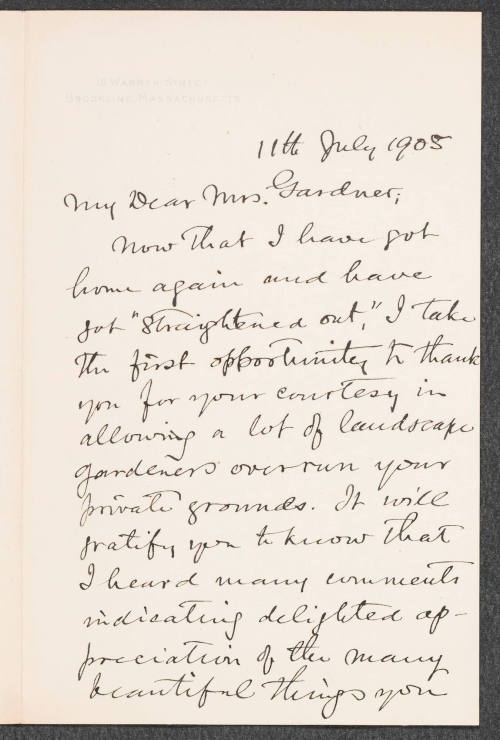 Brookline, Massachusetts
11th July 1905
My Dear Mrs. Gardner;
Now that I have got
home again and have
got "straightened out," I take
the first opportunity to thank
you for your courtesy in
allowing a lot of landscape
gardeners overrun your
private grounds. It will
gratify you to know that
I heard many comments
indicating delighted ap-
preciation of the many
beautiful things you